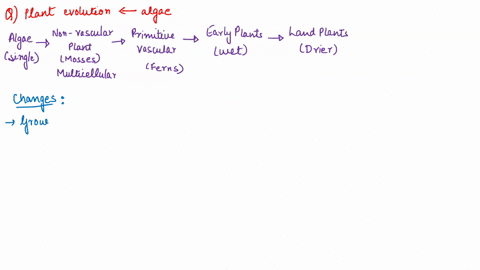 Q) Plant evolution ← algae
Algae → Non-vascular → Primitive → Early Plants → Land Plants
(single) Plant Vascular (wet) (Drier)
(Mosses) (Ferns)
Multicellular
Changes:
→ Grow